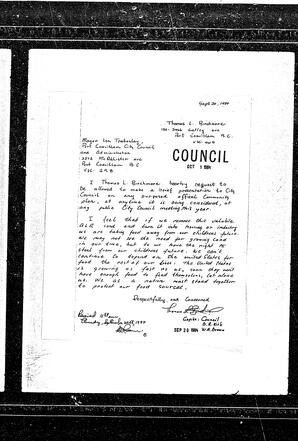 Sept 20, 1984
Thomas L. Birchmore
Port Coquitlam B.C.
Mayor Len Traboulay,
Port Coquitlam City Council
and Administration
2272 McAllister ave
Port Coquitlam B.C.
V3C 2A8
COUNCIL
OCT 1 1984
I Thomas L. Birchmore hereby request to
be allowed to make a brief presentation to City
Council on any proposed official Community
plan, at anytime it is being considered, at
any public City Council meeting this year.
I feel that if we remove this valuable
ALR land and turn it into housing or industry
we are taking food away from our childrens plates.
We may not see the need for growing land
in our time, but do we have the right to
steal from our childrens future. We can't
continue to depend on the united states for
food the rest of our lives. The United States
is growing as fast as us, soon they won't
have enough food to feed themselves, let alone
us. We as a nation must stand together
to protect our food sources.
Respectfully, and Concerned
Received
Council
SEP 20 1984